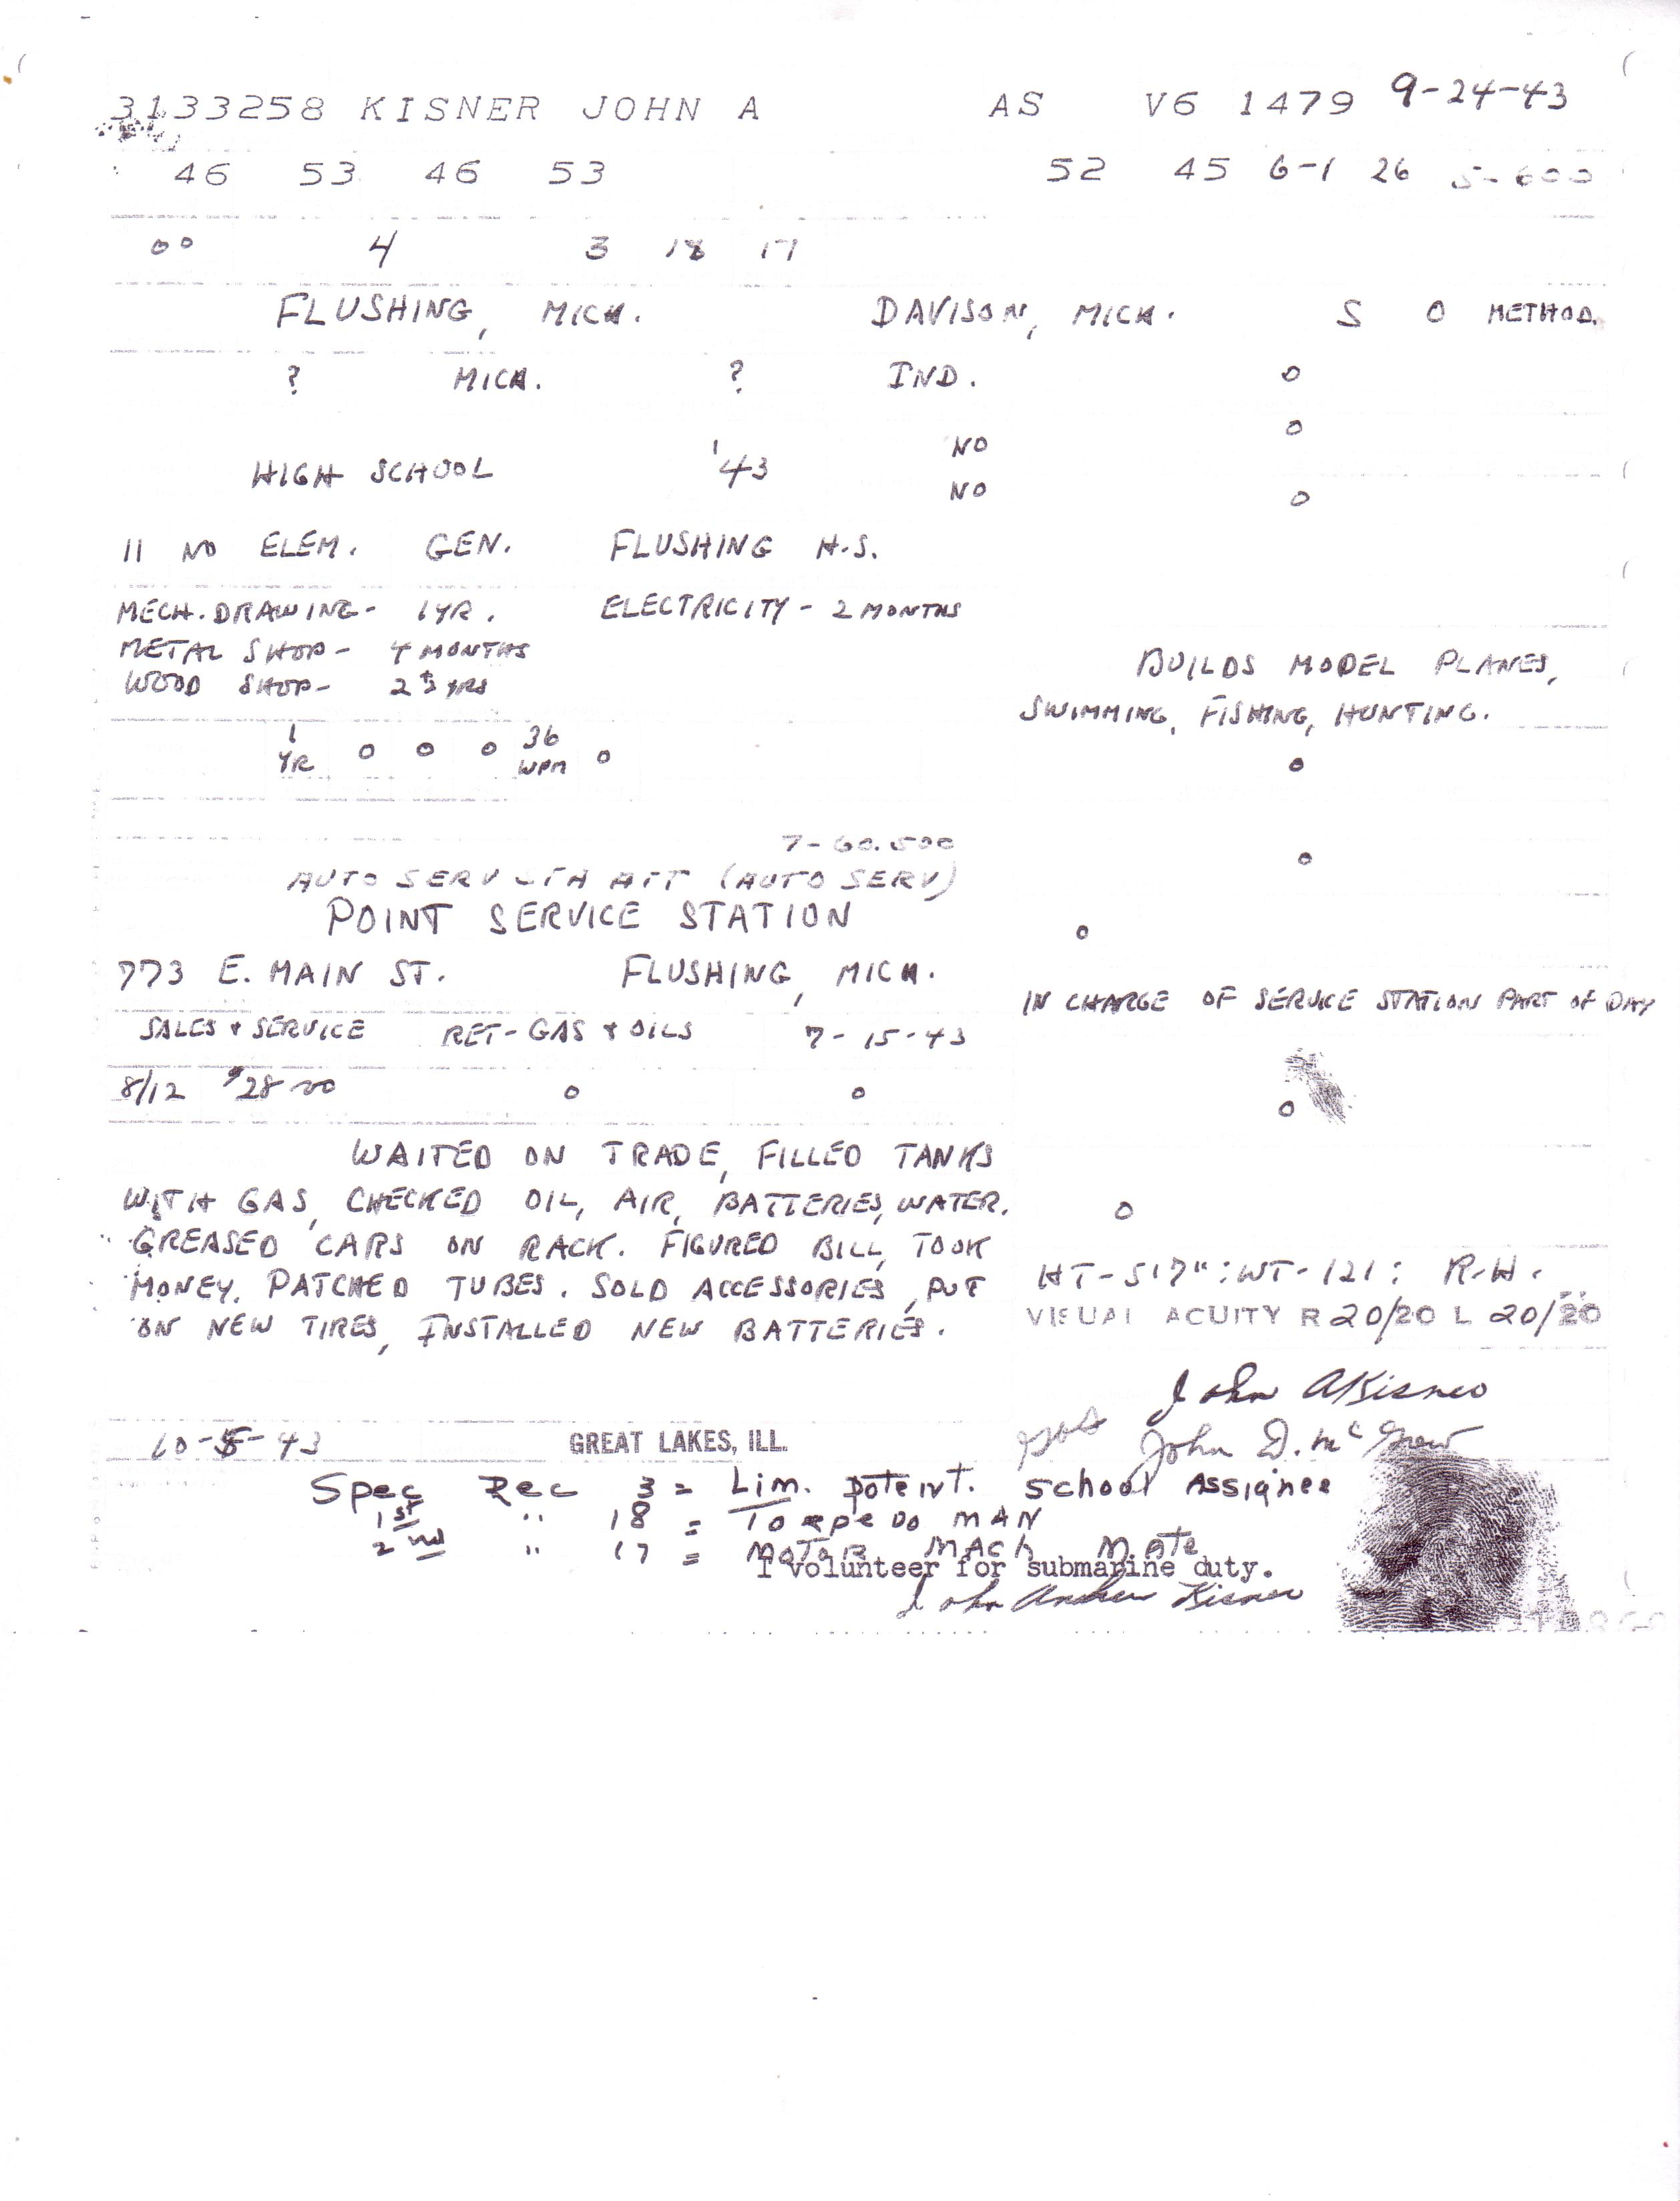 3133258 KISNER JOHN A AS V6 1479 9-24-43
46 53 46 53 52 45 6-1 26 5-600
00 4 3 18 17
FLUSHING, MICH. DAVISON, MICH. S O METHOD.
? MICH. ? IND. O
HIGH SCHOOL '43 NO O
NO O
11 NO ELEM. GEN. FLUSHING H.S.
MECH. DRAWING- 1YR. ELECTRICITY - 2 MONTHS
METAL SHOP- 4 MONTHS
WOOD SHOP- 2 YRS
BUILDS MODEL PLANES,
SWIMMING, FISHING, HUNTING.
1 YR O O O 36 WPM O O
7-60.500
O
AUTO SERV ATT (AUTO SERV)
POINT SERVICE STATION O
773 E. MAIN ST. FLUSHING, MICH.
IN CHARGE OF SERVICE STATION PART OF DAY
SALES & SERVICE RET-GAS & OILS 7-15-43
8/12 $28 00 O O O
WAITED ON TRADE, FILLED TANKS
WITH GAS, CHECKED OIL, AIR, BATTERIES, WATER. O
GREASED CARS ON RACK. FIGURED BILL, TOOK
MONEY. PATCHED TUBES. SOLD ACCESSORIES, PUT
ON NEW TIRES, INSTALLED NEW BATTERIES.
HT-5'7": WT-121: R.H.
VISUAL ACUITY R 20/20 L 20/20
John A Kisner
10-5-43 GREAT LAKES, ILL. John D. McGrew
Spec Rec 3 = Lim. potent. School Assignee
1st " 18 = Torpedo MAN
2nd " 17 = Motor MACh Mate
I volunteer for submarine duty.
John Andrew Kisner